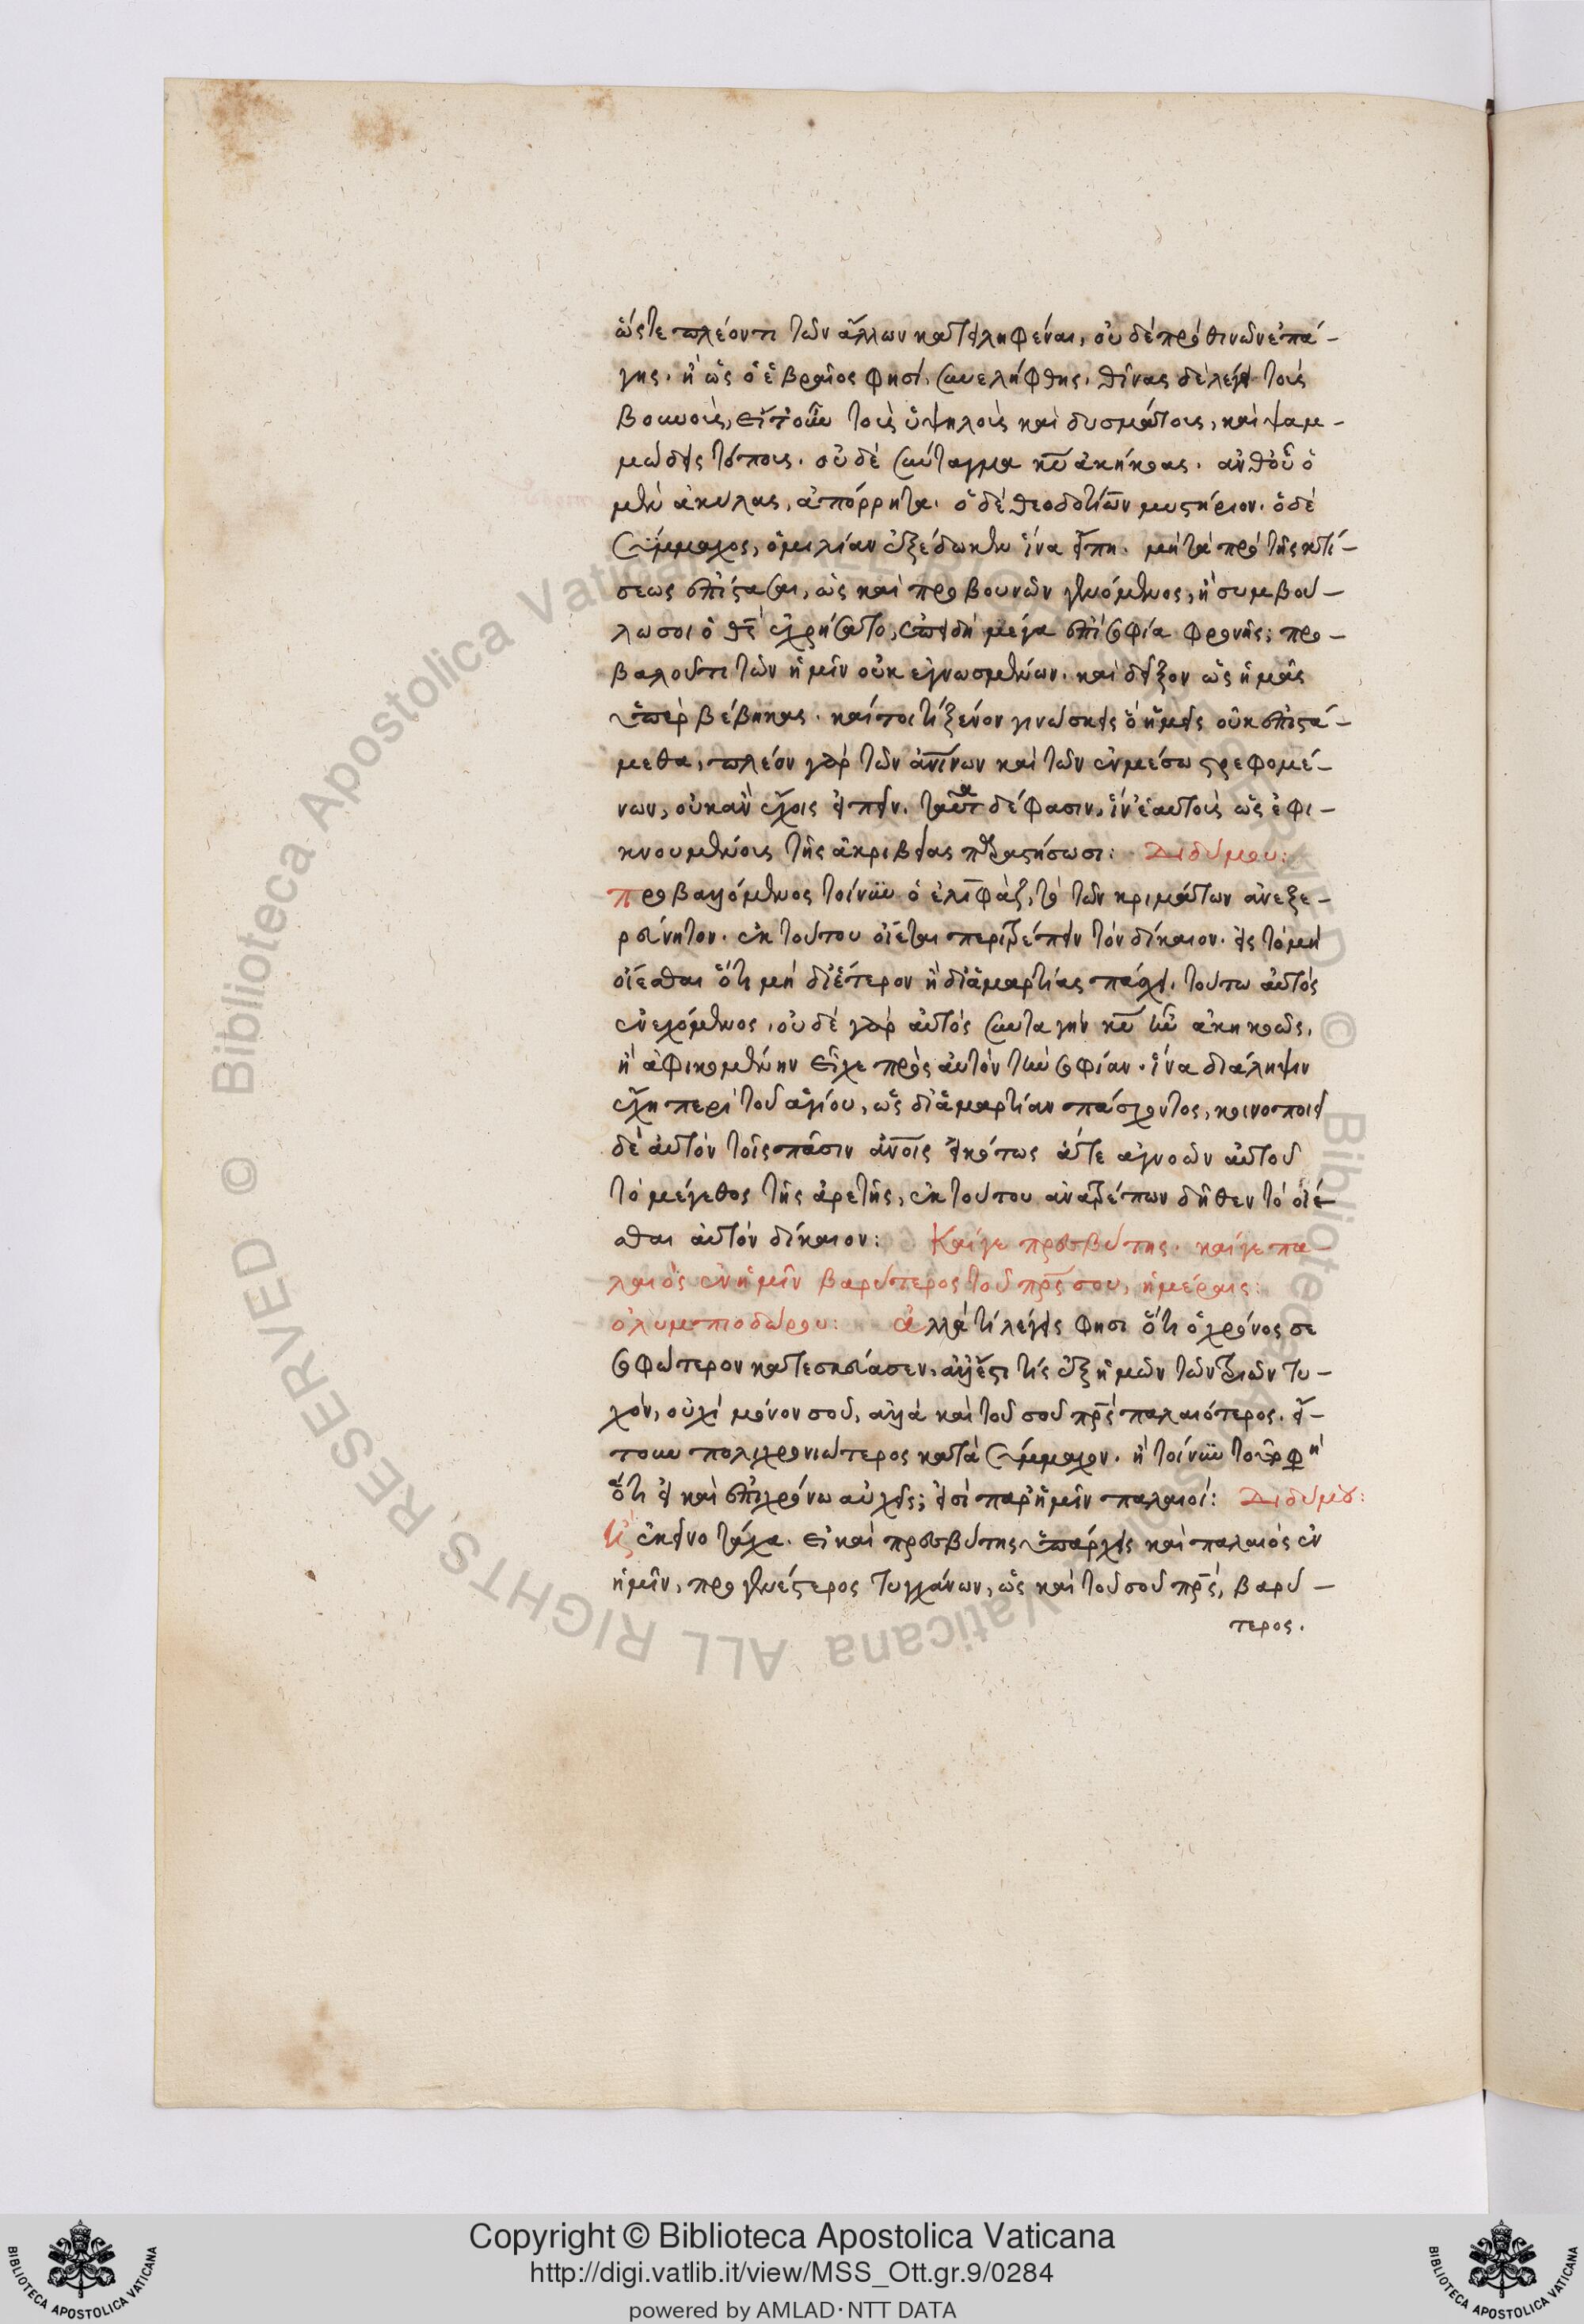 ὥστε πλέον τι τῶν ἄλλων κατειληφέναι, οὐδὲ πρὸ θινῶν ἐπά-
γης. ἢ ὡς ὁ ἑβραῖος φησί, συνελήφθης. θῖνας δὲ λέγει τοὺς
βουνοὺς, εἴτουν τοῖς ὑψηλοῖς καὶ δυσβάτοις, καὶ ψαμ-
μώδεις τόποις. οὐδὲ σύνταγμα κυ ἀκήκοας. ἀνθ' οὗ ὁ
μὲν ἀκύλας, ἀπόρρητα. ὁ δὲ θεοδοτίων μυστήριον. ὁ δὲ
σύμμαχος, ὁμιλίαν ἐξέδωκεν ἵνα εἴπη. μὴ τὰ πρὸ τῆς κτί-
σεως ἐπίστασαι, ὡς καὶ προ βουνῶν γενόμενος, ἢ συμβού-
λω σοι ὁ θς ἐχρήσατο, ἐπειδὴ μέγα ἐπὶ σοφία φρονεῖς; προ-
βαλοῦ τι τῶν ἡμῖν οὐκ ἐγνωσμένων. καὶ δεῖξον ὡς ἡμᾶς
ὑπερβέβηκας. καίτοι τί ξένον γινώσκεις ὃ ἡμεῖς οὐκ ἐπιστά-
μεθα, πλέον γὰρ τῶν ἀνίνων καὶ τῶν ἐν μέσω στρεφομέ-
νων, οὐκ ἂν ἔχοις εἰπεῖν. ταῦτα δέ φασιν, ἵν' ἑαυτοὺς ὡς ἐφι-
κνουμένους τῆς ἀκριβείας παραστήσωσι: Διδύμου:
προβαλλόμενος τοίνυν ὁ ἐλιφὰζ, τὸ τῶν κριμάτων ἀνεξε-
ρεύνητον. ἐκ τούτου οἴεται περιτρέπειν τὸν δίκαιον. εἰς τὸ μὴ
οἴεσθαι ὅτι μὴ δι' ἕτερον ἢ δι' ἁμαρτίας πάσχει. τούτω αὐτὸς
ἐνεχόμενος, οὐδὲ γὰρ αὐτὸς συνταγὴν κυ ἦν ἀκηκοὼς,
ἢ ἀφικομένην εἶχε πρὸς αὐτὸν τὴν σοφίαν. ἵνα διάληψιν
ἔχη περὶ τοῦ ἁγίου, ὡς δι' ἁμαρτίαν πάσχοντος, κοινοποιεῖ
δὲ αὐτὸν τοῖς πᾶσιν ἀνοις εἰκότως ἅτε ἀγνοῶν αὐτοῦ
τὸ μέγεθος τῆς ἀρετῆς, ἐκ τούτου ἀνατρέπων δῆθεν τὸ οἴε-
σθαι αὐτὸν δίκαιον: Καίγε πρεσβύτης. καίγε πα-
λαιὸς ἐν ἡμῖν βαρύτερος τοῦ πρς σου, ἡμέραις:
ὀλυμπιοδώρου: ἀλλὰ τί λέγεις φησι ὅτι ὁ χρόνος σε
σοφώτερον κατεσκεύασεν, ἀλλ' ἔστι τίς ἐξ ἡμῶν τῶν τριῶν τυ-
χὸν, οὐχὶ μόνον σοῦ, ἀλλὰ καὶ τοῦ σοῦ πρς παλαιότερος. εἴ-
τουν πολυχρονιώτερος κατὰ σύμμαχον. ἢ τοίνυν τοῦτό φη
ὅτι εἰ καὶ ἐπὶ χρόνω αὐχεῖς; εἰσὶ παρ' ἡμῖν παλαιοί: Διδύμου:
κἀκεῖνο τάχα. εἰ καὶ πρεσβύτης ὑπάρχεις καὶ παλαιὸς ἐν
ἡμῖν, προγενέστερος τυγχάνων, ὡς καὶ τοῦ σοῦ πρς, βαρύ-
τερος.
Copyright © Biblioteca Apostolica Vaticana
http://digi.vatlib.it/view/MSS_Ott.gr.9/0284
powered by AMLAD·NTT DATA